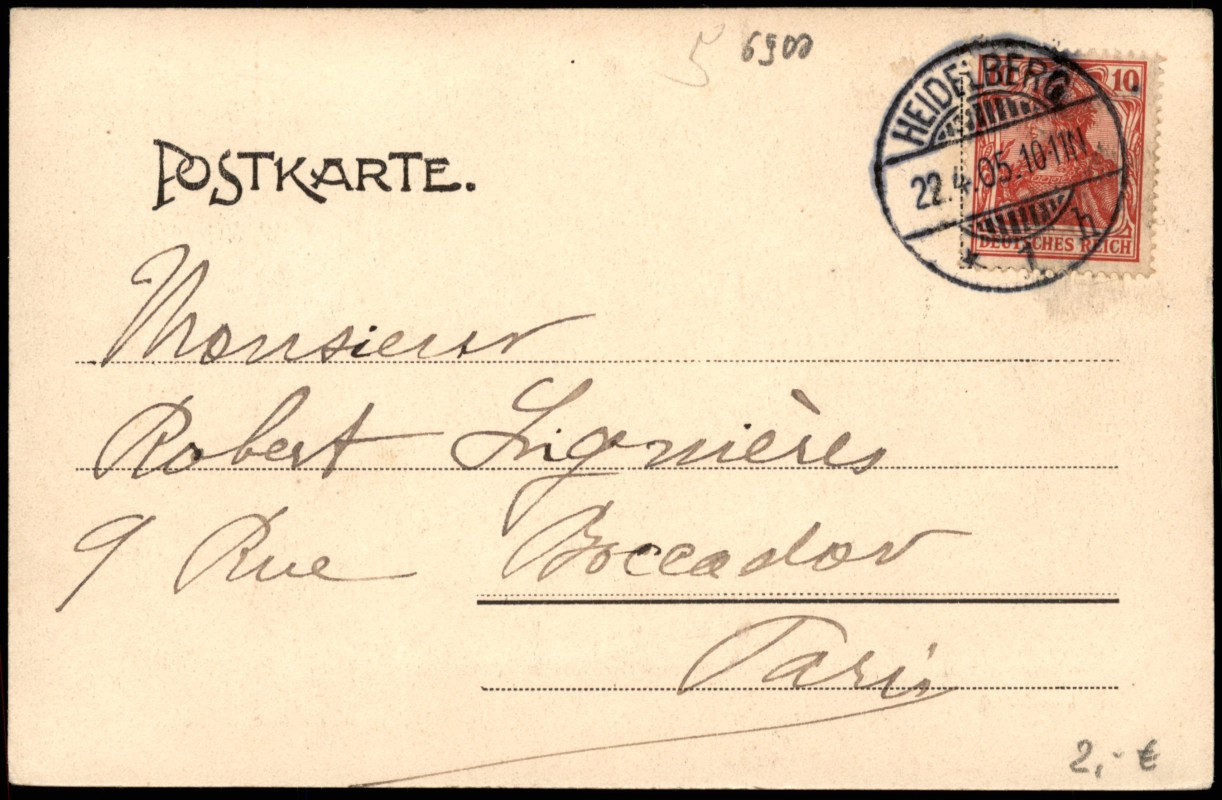 5 6900
POSTKARTE.
HEIDELBERG
22.4.05.10-11N.
* 1 h
10
DEUTSCHES REICH
Monsieur
Robert Lignières
9 Rue Boccador
Paris
2,- €